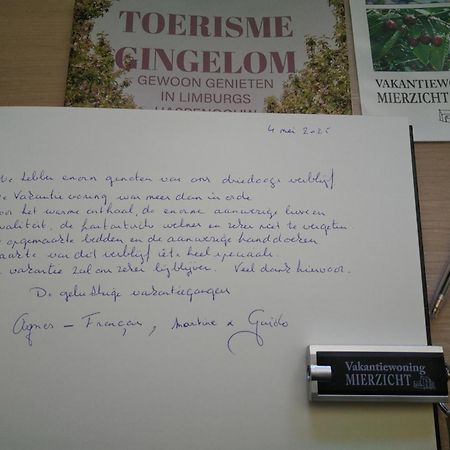 TOERISME
GINGELOM
GEWOON GENIETEN
IN LIMBURGS
HASPENGOUW
VAKANTIEWO
MIERZICHT
4 mei 2025
We hebben enorm genoten van ons driedaags verblijf
De vakantiewoning was meer dan in orde
het warme onthaal, de enorme aanwezige luxe en
kwaliteit, de fantastische wellness en zeker niet te vergeten
opgemaakte bedden en de aanwezige handdoeken
maakte van dit verblijf iets heel speciaals.
vakantie zal ons zeker bijblijven. Veel dank hiervoor.
De gelukkige vakantiegangers
Agnes - François, Martine & Guido
Vakantiewoning
MIERZICHT